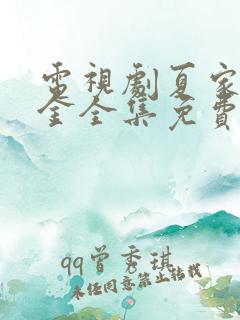 電視劇夏家
全全集免費
qq曾秀琪
未经同意禁止转载